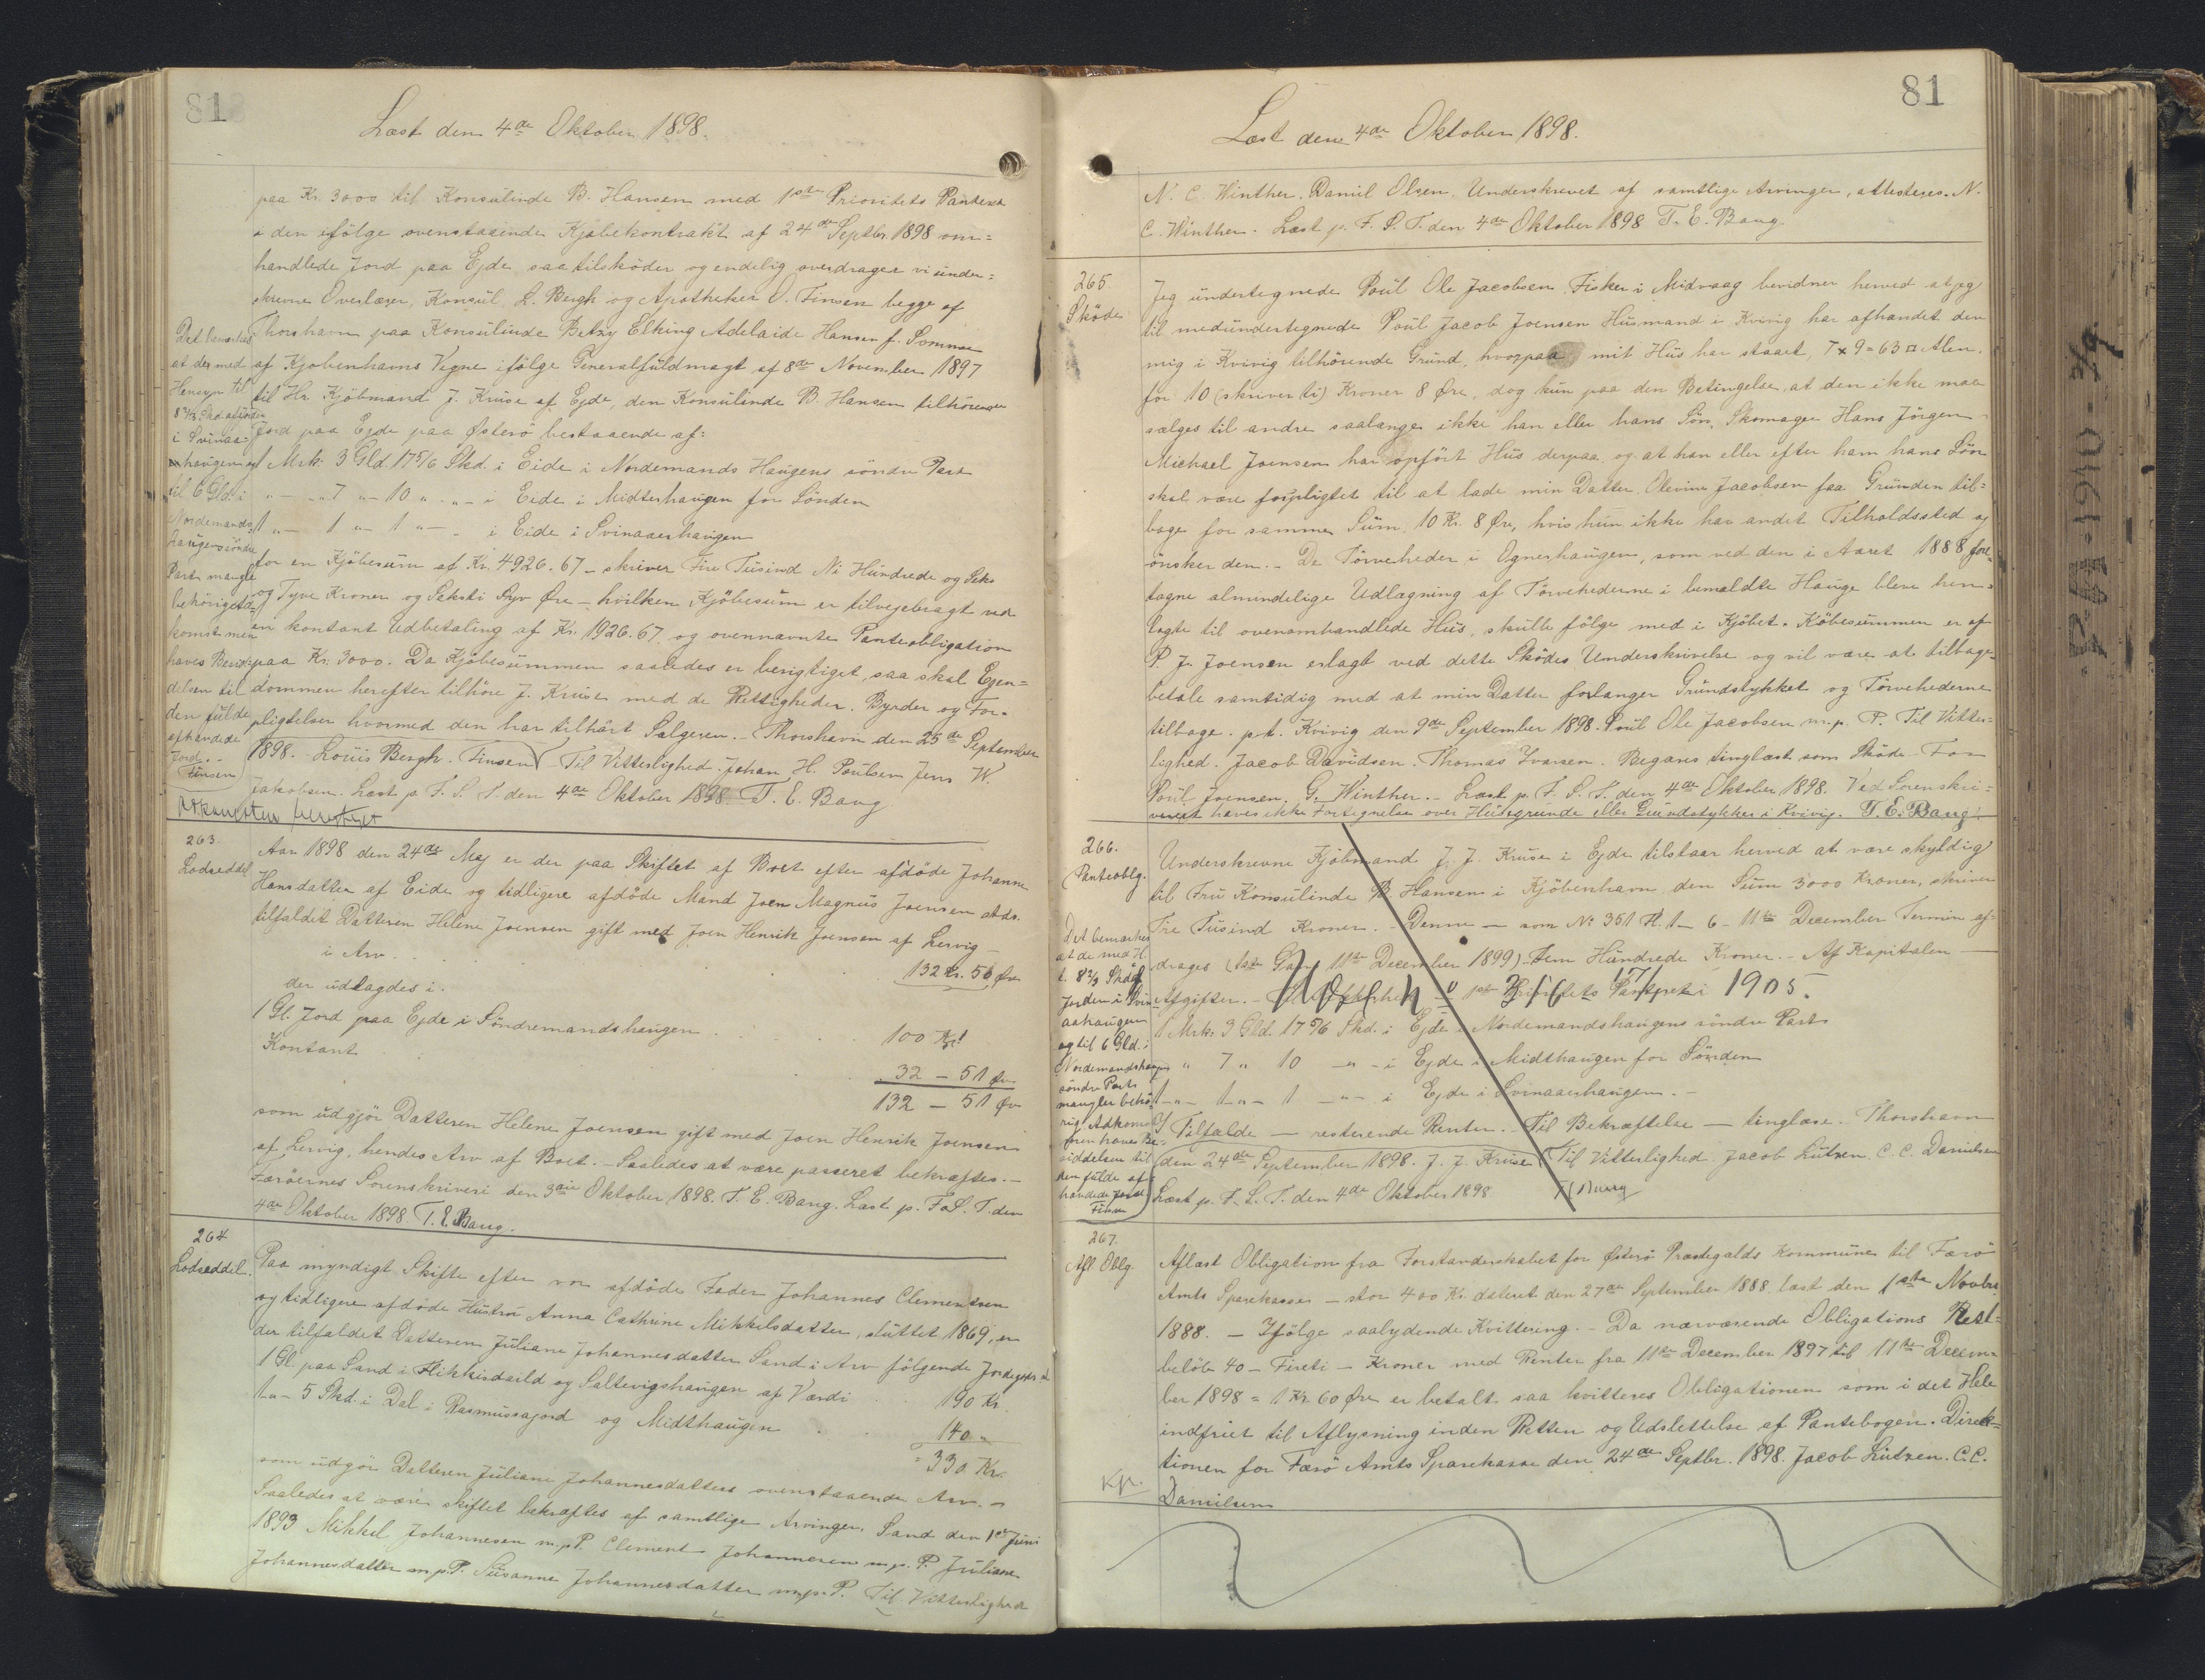 81
Læst den 4de Oktober 1898.
paa Kr. 3000 til Konsulinde B. Hansen med 1ste Prioritets Panteret
i den ifölge ovenstaaende Kjøbekontrakt af 24de Septbr. 1898 om=
handlede Jord paa Ejde saa tilsköder og endelig overdrager vi under=
skrevne Overlærer, Konsul L. Bergh og Apotheker O. Finsen begge af
Thorshavn paa Konsulinde Betzy Elking Adelaide Hansen f. Sommer
af Kjøbenhavns Vegne ifölge Generalfuldmagt af 8de November 1897
til Hr. Kjöbmand J. Kruse af Ejde, den Konsulinde B. Hansen tilhörende
Jord paa Ejde paa Østerö bestaaende af:
1 Mrk. 3 Gld. 17 5/6 Skd. i Eide i Nordemands Haugens söndre Part
" — " 7 " 10 " " — i Eide i Midterhaugen for Sönden
1 " — 1 " — 1 " — i Eide i Svinaaerhaugen
for en Kjöbesum af Kr. 4926.67 — skriver Fire Tusind Ni Hundrede og Seks
og Tyve Kroner og Seksti Syv Øre — hvilken Kjöbesum er tilvejebragt ved
en kontant Udbetaling af Kr. 1926.67 og ovennævnte Panteobligation
paa Kr. 3000. Da Kjøbesummen saaledes er berigtiget, saa skal Ejen=
dommen herefter tilhöre J. Kruse med de Rettigheder, Byrder og For=
pligtelser hvormed den har tilhört Sælgeren. — Thorshavn den 25de September
1898. Louis Bergh. Finsen / Til Vitterlighed: Johan H. Poulsen Jens W.
Jakobsen. Læst p. F. S. T. den 4de Oktober 1898 T. E. Bang
Det bemærkes
at der med
Hensyn til
8 2/3 Skd. af Jorden
i Svinaa=
haugen og
til 6 Gld. i
Nordemands
haugens söndre
Part mangler
behörig Ad=
komst men
haves Besid=
delsen til
den fulde
afhændede
Jord. —
Finsen
263.
Lodseddel
Aar 1898 den 24de Maj er der paa Skiftet af Boet efter afdöde Johanne
Hansdatter af Eide og tidligere afdöde Mand Joen Magnus Joensen atds.
tilfaldet Datteren Helene Joensen gift med Joen Henrik Joensen af Lervig —
i Arv . . . 132 Kr. 50 Øre
der udlagdes i.
1 Gl. Jord paa Ejde i Söndremandshaugen . . . . 100 Kr!
Kontant . . . 32 — 51 Øre
132 — 51 Øre
som udgjör Datteren Helene Joensen gift med Joen Henrik Joensen
af Lervig, hendes Arv af Boet. — Saaledes at være passeret bekræftes. —
Færöernes Sorenskriveri den 3die Oktober 1898. T. E. Bang. Læst p. F. S. T. den
4de Oktober 1898. T. E. Bang.
264
Lodseddel.
Paa myndigt Skifte efter vor afdöde Fader Johannes Clementsen
og tidligere afdöde Hustru Anna Cathrine Mikkelsdatter, sluttet 1869, er
der tilfaldet Datteren Juliane Johannesdatter Sand i Arv følgende Jordegods
1 Gl. paa Sand i Flikkisdeild og Saltevigshaugen af Værdi . . 190 Kr.
5 Skd. i Dal i Rasmussajord og Midthaugen . . 140 "
= 330 Kr.
som udgör Datteren Juliane Johannesdatters ovenstaaende Arv. —
Saaledes at være skiftet bekræftes af samtlige Arvinger. Sand den 1ste Juni
1893 Mikkel Johannesen m.p.P. Clement Johannesen m.p.P. Juliane
Johannesdatter m.p.P. Susanne Johannesdatter m.p.P. Til Vitterlighed
81
Læst den 4de Oktober 1898.
N. C. Winther. Daniel Olsen. Underskrevet af samtlige Arvinger, attesteres. N.
C. Winther. Læst p. F. S. T. den 4de Oktober 1898 T. E. Bang.
265.
Sköde
Jeg undertegnede Poul Ole Jacobsen Fisker i Midvaag bevidner herved at jeg
til medundertegnede Poul Jacob Joensen Husmand i Kvivig har afhændet den
mig i Kvivig tilhörende Grund, hvorpaa mit Hus har staaet, 7 x 9 = 63 □ Alen,
for 10 (skriver ti) Kroner 8 Øre, dog kun paa den Betingelse, at den ikke maa
sælges til andre saalænge ikke han eller hans Sön, Skomager Hans Jörgen
Michael Joensen har opfört Hus derpaa og at han eller efter ham hans Sön
skal være forpligtet til at lade min Datter Olevine Jacobsen faa Grunden til=
bage for samme Sum, 10 Kr. 8 Øre, hvis hun ikke har andet Tilholdssted og
önsker den. — De Törveheder i Ognerhaugen, som ved den i Aaret 1888 fore=
tagne almindelige Udlægning af Törvehederne i bemeldte Hauge bleve hen=
lagte til ovenomhandlede Hus, skulle fölge med i Kjöbet. Köbesummen er af
P. J. Joensen erlagt ved dette Sködes Underskrivelse og vil være at tilbage=
betale samtidig med at min Datter forlanger Grundstykket og Törvehederne
tilbage. p.t. Kvivig den 9de September 1898. Poul Ole Jacobsen m.p. P. Til Vitter=
lighed. Jacob Davidsen. Thomas Ivarsen. Begæres tinglæst som Sköde For
Poul Joensen. G. Winther. — Læst p. F. S. T. den 4de Oktober 1898. Ved Sorenskri=
veriet haves ikke Fortegnelse over Husegrunde eller Grundstykker i Kvivig. T. E. Bang.
266.
Panteoblg.
Underskrevne Kjöbmand J. J. Kruse i Ejde tilstaar herved at være skyldig
til Fru Konsulinde B. Hansen i Kjöbenhavn den Sum 3000 Kroner, skriver
Tre Tusind Kroner. — Denne — som No 351 H. 1 — 6 — 11te December Termin af=
drages (1ste Gang 11te December 1899) Fem Hundrede Kroner. — Af Kapitalen —
Afgifter. — 1ste Prioritets Panteret i
1 Mrk. 3 Gld. 17 5/6 Skd. i Ejde i Nordemandshaugens söndre Part
" 7 " 10 — " — i Ejde i Midthaugen for Sönden
1 — " — 1 — " — 1 — " — i Ejde i Svinaaerhaugen. —
I Tilfælde — resterende Renter. — Til Bekræftelse — tinglæse. Thorshavn
den 24de September 1898. J. J. Kruse / Til Vitterlighed. Jacob Lützen. C. C. Danielsen
Læst p. F. S. T. den 4de Oktober 1898 T E Bang
17/1 1905.
Det bemærkes
at de med H.
t. 8 2/3 Skd af
Jorden i Svin
aahaugen
og til 6 Gld. i
Nordemandshaugens
söndre Part
mangler behö=
rig Adkomst
men haves Be=
siddelsen til
den fulde af=
hændede Jord
Finsen
267.
Afl. Oblg.
Aflæst Obligation fra Forstanderskabet for Østerö Præstegjælds Kommune til Færö
Amts Sparekasse — stor 400 Kr. dateret den 27de September 1888 læst den 1ste Novbr
1888. — Ifölge saalydende Kvittering. — Da nærværende Obligations Rest=
belöb 40 — Fireti — Kroner med Renter fra 11te December 1897 til 11te Decem=
ber 1898 = 1 Kr. 60 Øre er betalt saa kvitteres Obligationen som i det Hele
indfriet til Aflysning inden Retten og Udslettelse af Pantebogen. Direk=
tionen for Færö Amts Sparekasse den 24de Septbr. 1898. Jacob Lützen. C. C.
Danielsen